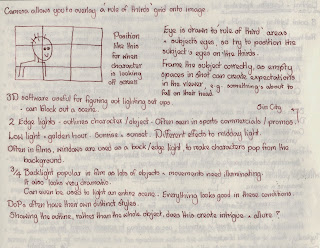 Camera allows you to overlay a rule of thirds grid onto image.
Position
like this
for when
character
is looking
off screen
Eye is drawn to rule of third areas
+ subjects eyes, so try to position the
subject's eyes on the thirds.
Frame the subject correctly, as empty
spaces in shot can create expectations
in the viewer e.g. something's about to
fall on their head.
3D software useful for figuring out lighting set ups.
- can block out a scene.
Sin City
2 Edge lights - outlines character/object - Often seen in sports commercials/promos.
Low light = golden hour - Sunrise + sunset. Different effects to midday light.
Often in films, windows are used as a back/edge light, to make characters pop from the
background.
3/4 Backlight popular in film as lots of objects + movements need illuminating.
It also looks very dramatic.
Can even be used to light an entire scene. Everything looks good in these conditions.
DoPs often have their own distinct styles.
Showing the outline, rather than the whole object, does this create intrigue + allure?